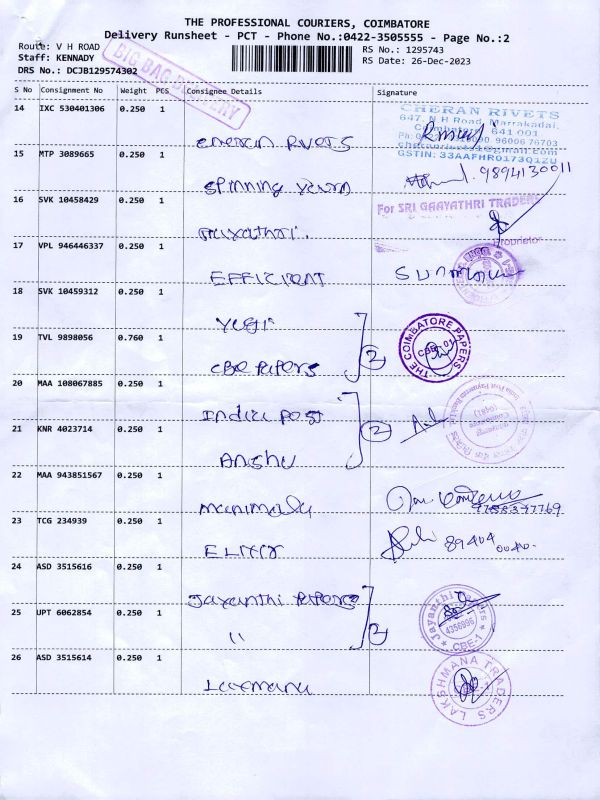 THE PROFESSIONAL COURIERS, COIMBATORE
Delivery Runsheet - PCT - Phone No.:0422-3505555 - Page No.:2
Route: V H ROAD
Staff: KENNADY
DRS No.: DCJB129574302
RS No.: 1295743
RS Date: 26-Dec-2023
BIG BAG DELIVERY
S No Consignment No Weight PCS Consignee Details Signature
14 IXC 530401306 0.250 1
CHERAN RIVETS
647, N H Road, Marrakadai,
Coimbatore 641 001
GSTIN: 33AAFHR0173Q1ZU
15 MTP 3089665 0.250 1
Spinning
9894130011
16 SVK 10458429 0.250 1
For SRI GAAYATHRI TRADERS
Proprietor
17 VPL 946446337 0.250 1
EFFICIENT
18 SVK 10459312 0.250 1
Yugi
19 TVL 9898056 0.760 1
CBE Papers
2
THE COIMBATORE PAPERS
CBE-01
20 MAA 108067885 0.250 1
India Post
21 KNR 4023714 0.250 1
Anshu
2
22 MAA 943851567 0.250 1
23 TCG 234939 0.250 1
ELIXIR
24 ASD 3515616 0.250 1
Jayanthi Papers
25 UPT 6062854 0.250 1
"
2
Jayanthi Papers
4356996
CBE-1
26 ASD 3515614 0.250 1
LAKSHMANA TRADERS